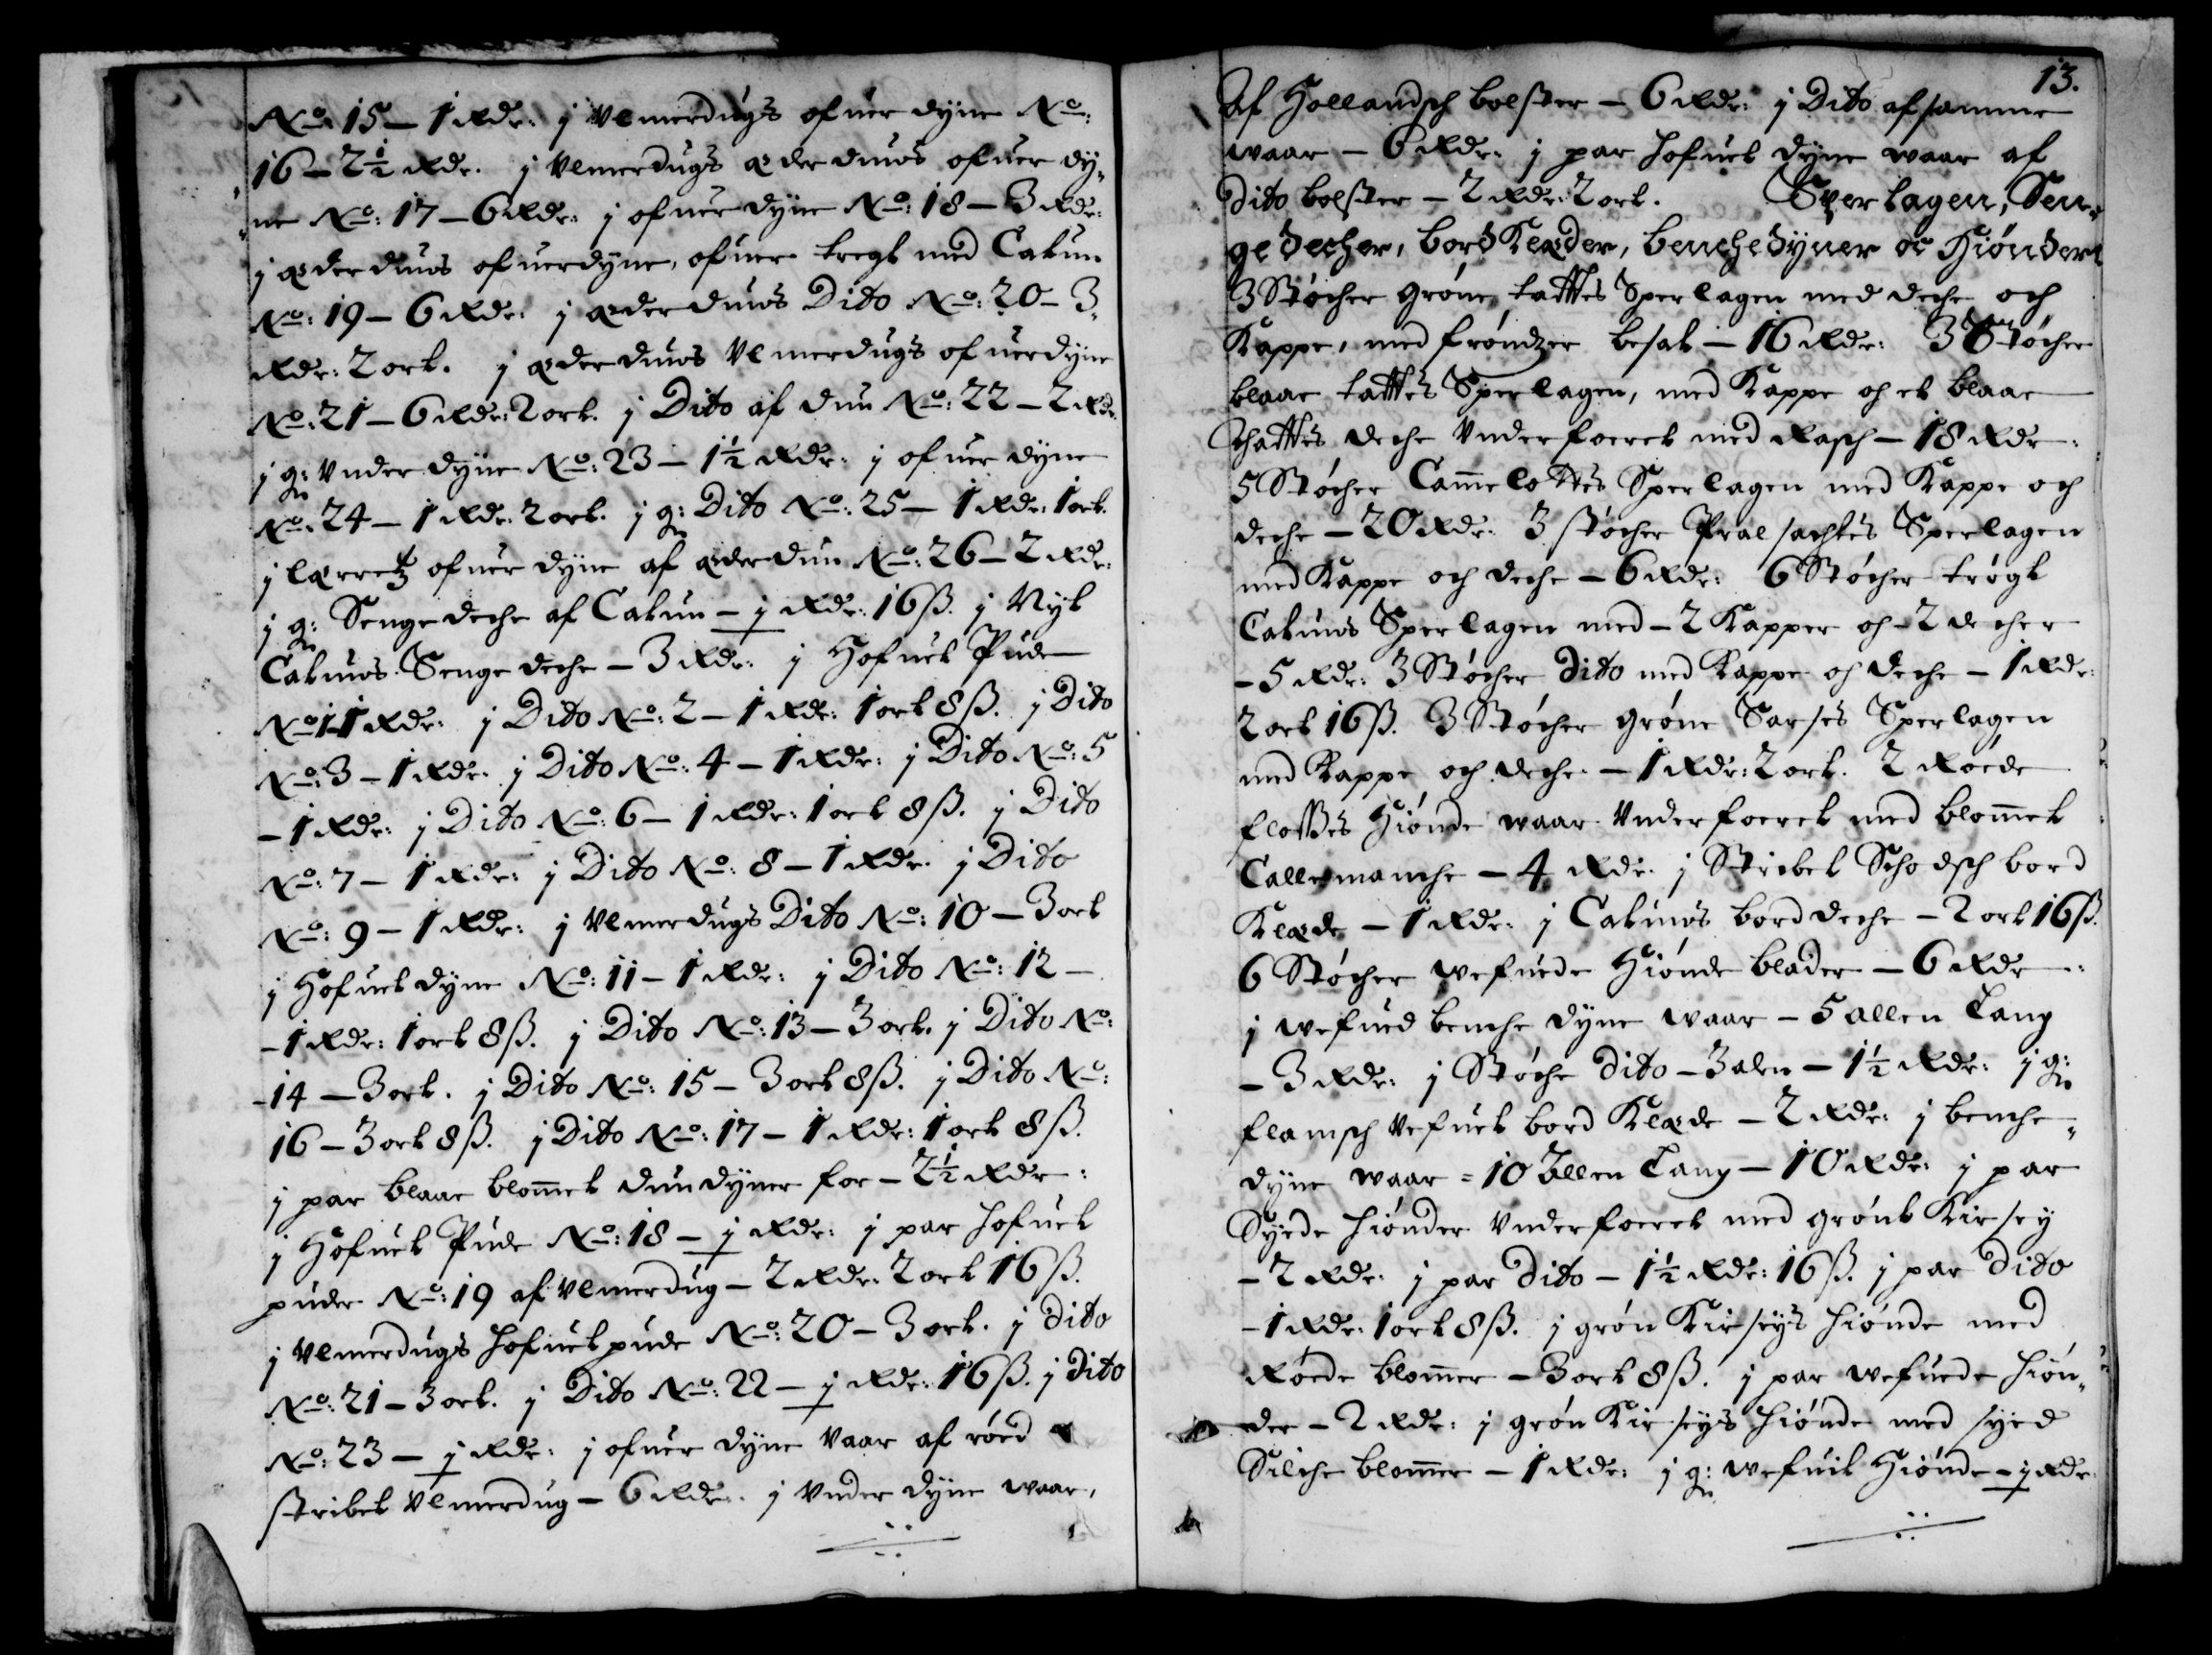 No: 15 – 1 Rdr: j Ulmerdugs ofuer dyne No:
16 – 2½ Rdr. j Ulmerdugs æderduns ofuer dy,
ne No: 17 – 6 Rdr: j ofuer dyne No: 18 – 3 Rdr:
j æderduns ofuerdyne, ofuer tregt med Catun
No: 19 – 6 Rdr: j æderduns Dito No: 20 – 3
Rdr: 2 ort. j æderduns Ulmerdugs ofuerdyne
No: 21 – 6 Rdr: 2 ort. j Dito af dun No: 22 – 2 Rdr.
j g: Under dyne No: 23 – 1½ Rdr: j ofuer dyne
No: 24 – 1 Rdr: 2 ort. j g: Dito No: 25 – 1 Rdr: 1 ort.
j lærretz ofuer dyne af æderdun No: 26 – 2 Rdr:
j g: Senge deche af Catun – j Rdr: 16 ß. j Nyt
Catuns Senge deche – 3 Rdr: j Hofuet Pude
No 1 1 Rdr: j Dito No: 2 – 1 Rdr: 1 ort 8 ß. j Dito
No: 3 – 1 Rdr. j Dito No: 4 – 1 Rdr: j Dito No: 5
– 1 Rdr: j Dito No: 6 – 1 Rdr: 1 ort 8 ß. j Dito
No: 7 – 1 Rdr: j Dito No: 8 – 1 Rdr. j Dito
No: 9 – 1 Rdr: j Ulmerdugs Dito No: 10 – 3 ort
j Hofuet dyne No: 11 – 1 Rdr: j Dito No: 12 –
– 1 Rdr: 1 ort 8 ß. j Dito No: 13 – 3 ort. j Dito No:
– 14 – 3 ort. j Dito No: 15 – 3 ort 8 ß. j Dito No:
16 – 3 ort 8 ß. j Dito No: 17 – 1 Rdr: 1 ort 8 ß.
j par blaae blommet dundyner for – 2½ Rdr:
j Hofuet Pude No: 18 – j Rdr: j par hofuet
puder No: 19 af Ulmerdug – 2 Rdr. 2 ort 16 ß.
j Ulmerdugs hofuet pude No: 20 – 3 ort. j Dito
No: 21 – 3 ort. j Dito No: 22 – j Rdr: 16 ß. j Dito
No: 23 – j Rdr: j ofuer dyne Vaar af röed
stribet Ulmerdug – 6 Rdr. j Under dyne waar,
13.
Af Hollandsch bolster – 6 Rdr: j Dito af samme
waar – 6 Rdr: j par hofuet dyne waar af
dito bolster – 2 Rdr: 2 ort. Sperlagen, Sen,
gedecher, bord Klæder, benchedyner oc Hiønder
3 Støcher grøne tafftes Sperlagen med deche och
Kappe, med frøndzer besat – 16 Rdr: 3 Støcher
blaae tafftes Sperlagen, med Kappe och et blaae
thafftes deche Underfoeret med Rasch – 18 Rdr:
5 Støcher Cammelottes Sperlagen med Kappe och
deche – 20 Rdr: 3 støcher Pralsachtes Sperlagen
med Kappe och deche – 6 Rdr: 6 Støcher trøgt
Catuns Sperlagen med – 2 Kapper och – 2 decher
– 5 Rdr: 3 Støcher dito med Kappe och deche – 1 Rdr:
2 ort 16 ß. 3 Støcher grøne Sarses Sperlagen
med Kappe och deche – 1 Rdr: 2 ort. 2 Røede
flosses Hiønde waar Underfoeret med blommet
Callemanche – 4 Rdr: j Stribet Schodsch bord
Klæde – 1 Rdr: j Catuns bord deche – 2 ort 16 ß.
6 Støcher wefuede Hiønde blader – 6 Rdr:
j wefued benche dyne waar – 5 allen Lang
– 3 Rdr: j Støche dito – 3 alen – 1½ Rdr: j g:
flamsch Vefuet bord Klæde – 2 Rdr: j benche,
dyne waar – 10 Allen Lang – 10 Rdr: j par
Syede hiønder Underfoeret med grønt Kirsey
– 2 Rdr: j par dito – 1½ Rdr: 16 ß. j par dito
– 1 Rdr: 1 ort 8 ß. j grøn Kirseys hiønde med
Røede blommer – 3 ort 8 ß. j par wefuede hiøn,
der – 2 Rdr: j grøn Kirseys hiønde med syed
Silche blommer – 1 Rdr: j g: wefuit Hiønde – j Rdr.